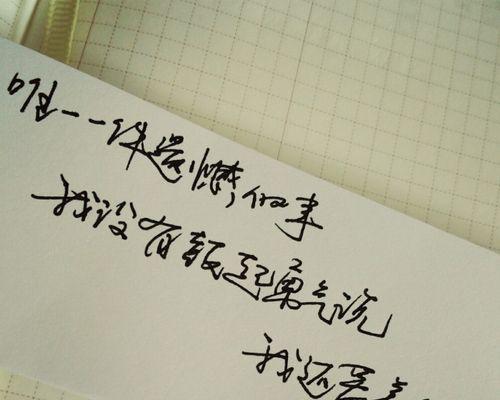 唯一一件遗憾的事
我没有鼓起勇气说
我还